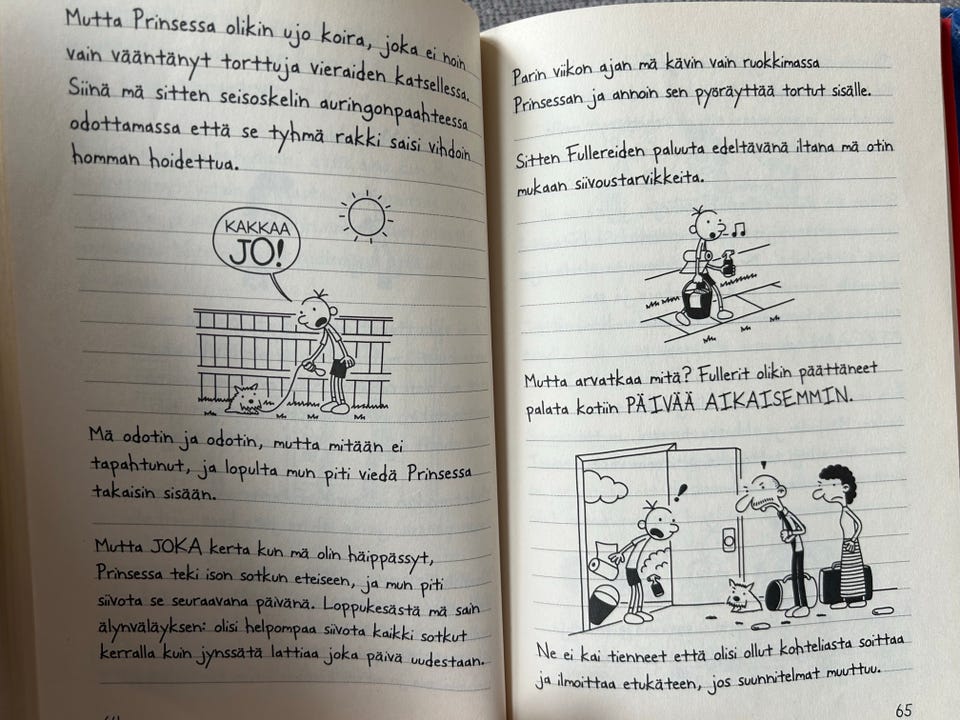 Mutta Prinsessa olikin ujo koira, joka ei noin
vain vääntänyt torttuja vieraiden katsellessa.
Siinä mä sitten seisoskelin auringonpaahteessa
odottamassa että se tyhmä rakki saisi vihdoin
homman hoidettua.
KAKKAA
JO!
Mä odotin ja odotin, mutta mitään ei
tapahtunut, ja lopulta mun piti viedä Prinsessa
takaisin sisään.
Mutta JOKA kerta kun mä olin häippässyt,
Prinsessa teki ison sotkun eteiseen, ja mun piti
siivota se seuraavana päivänä. Loppukesästä mä sain
älynväläyksen: olisi helpompaa siivota kaikki sotkut
kerralla kuin jynssätä lattiaa joka päivä uudestaan.
Parin viikon ajan mä kävin vain ruokkimassa
Prinsessan ja annoin sen pyöräyttää tortut sisälle.
Sitten Fullereiden paluuta edeltävänä iltana mä otin
mukaan siivoustarvikkeita.
Mutta arvatkaa mitä? Fullerit olikin päättäneet
palata kotiin PÄIVÄÄ AIKAISEMMIN.
!
!
Ne ei kai tienneet että olisi ollut kohteliasta soittaa
ja ilmoittaa etukäteen, jos suunnitelmat muuttuu.
65